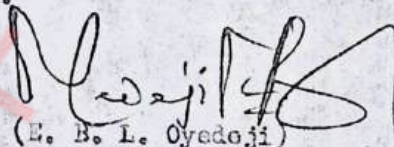 (E. B. L. Oyedeji)